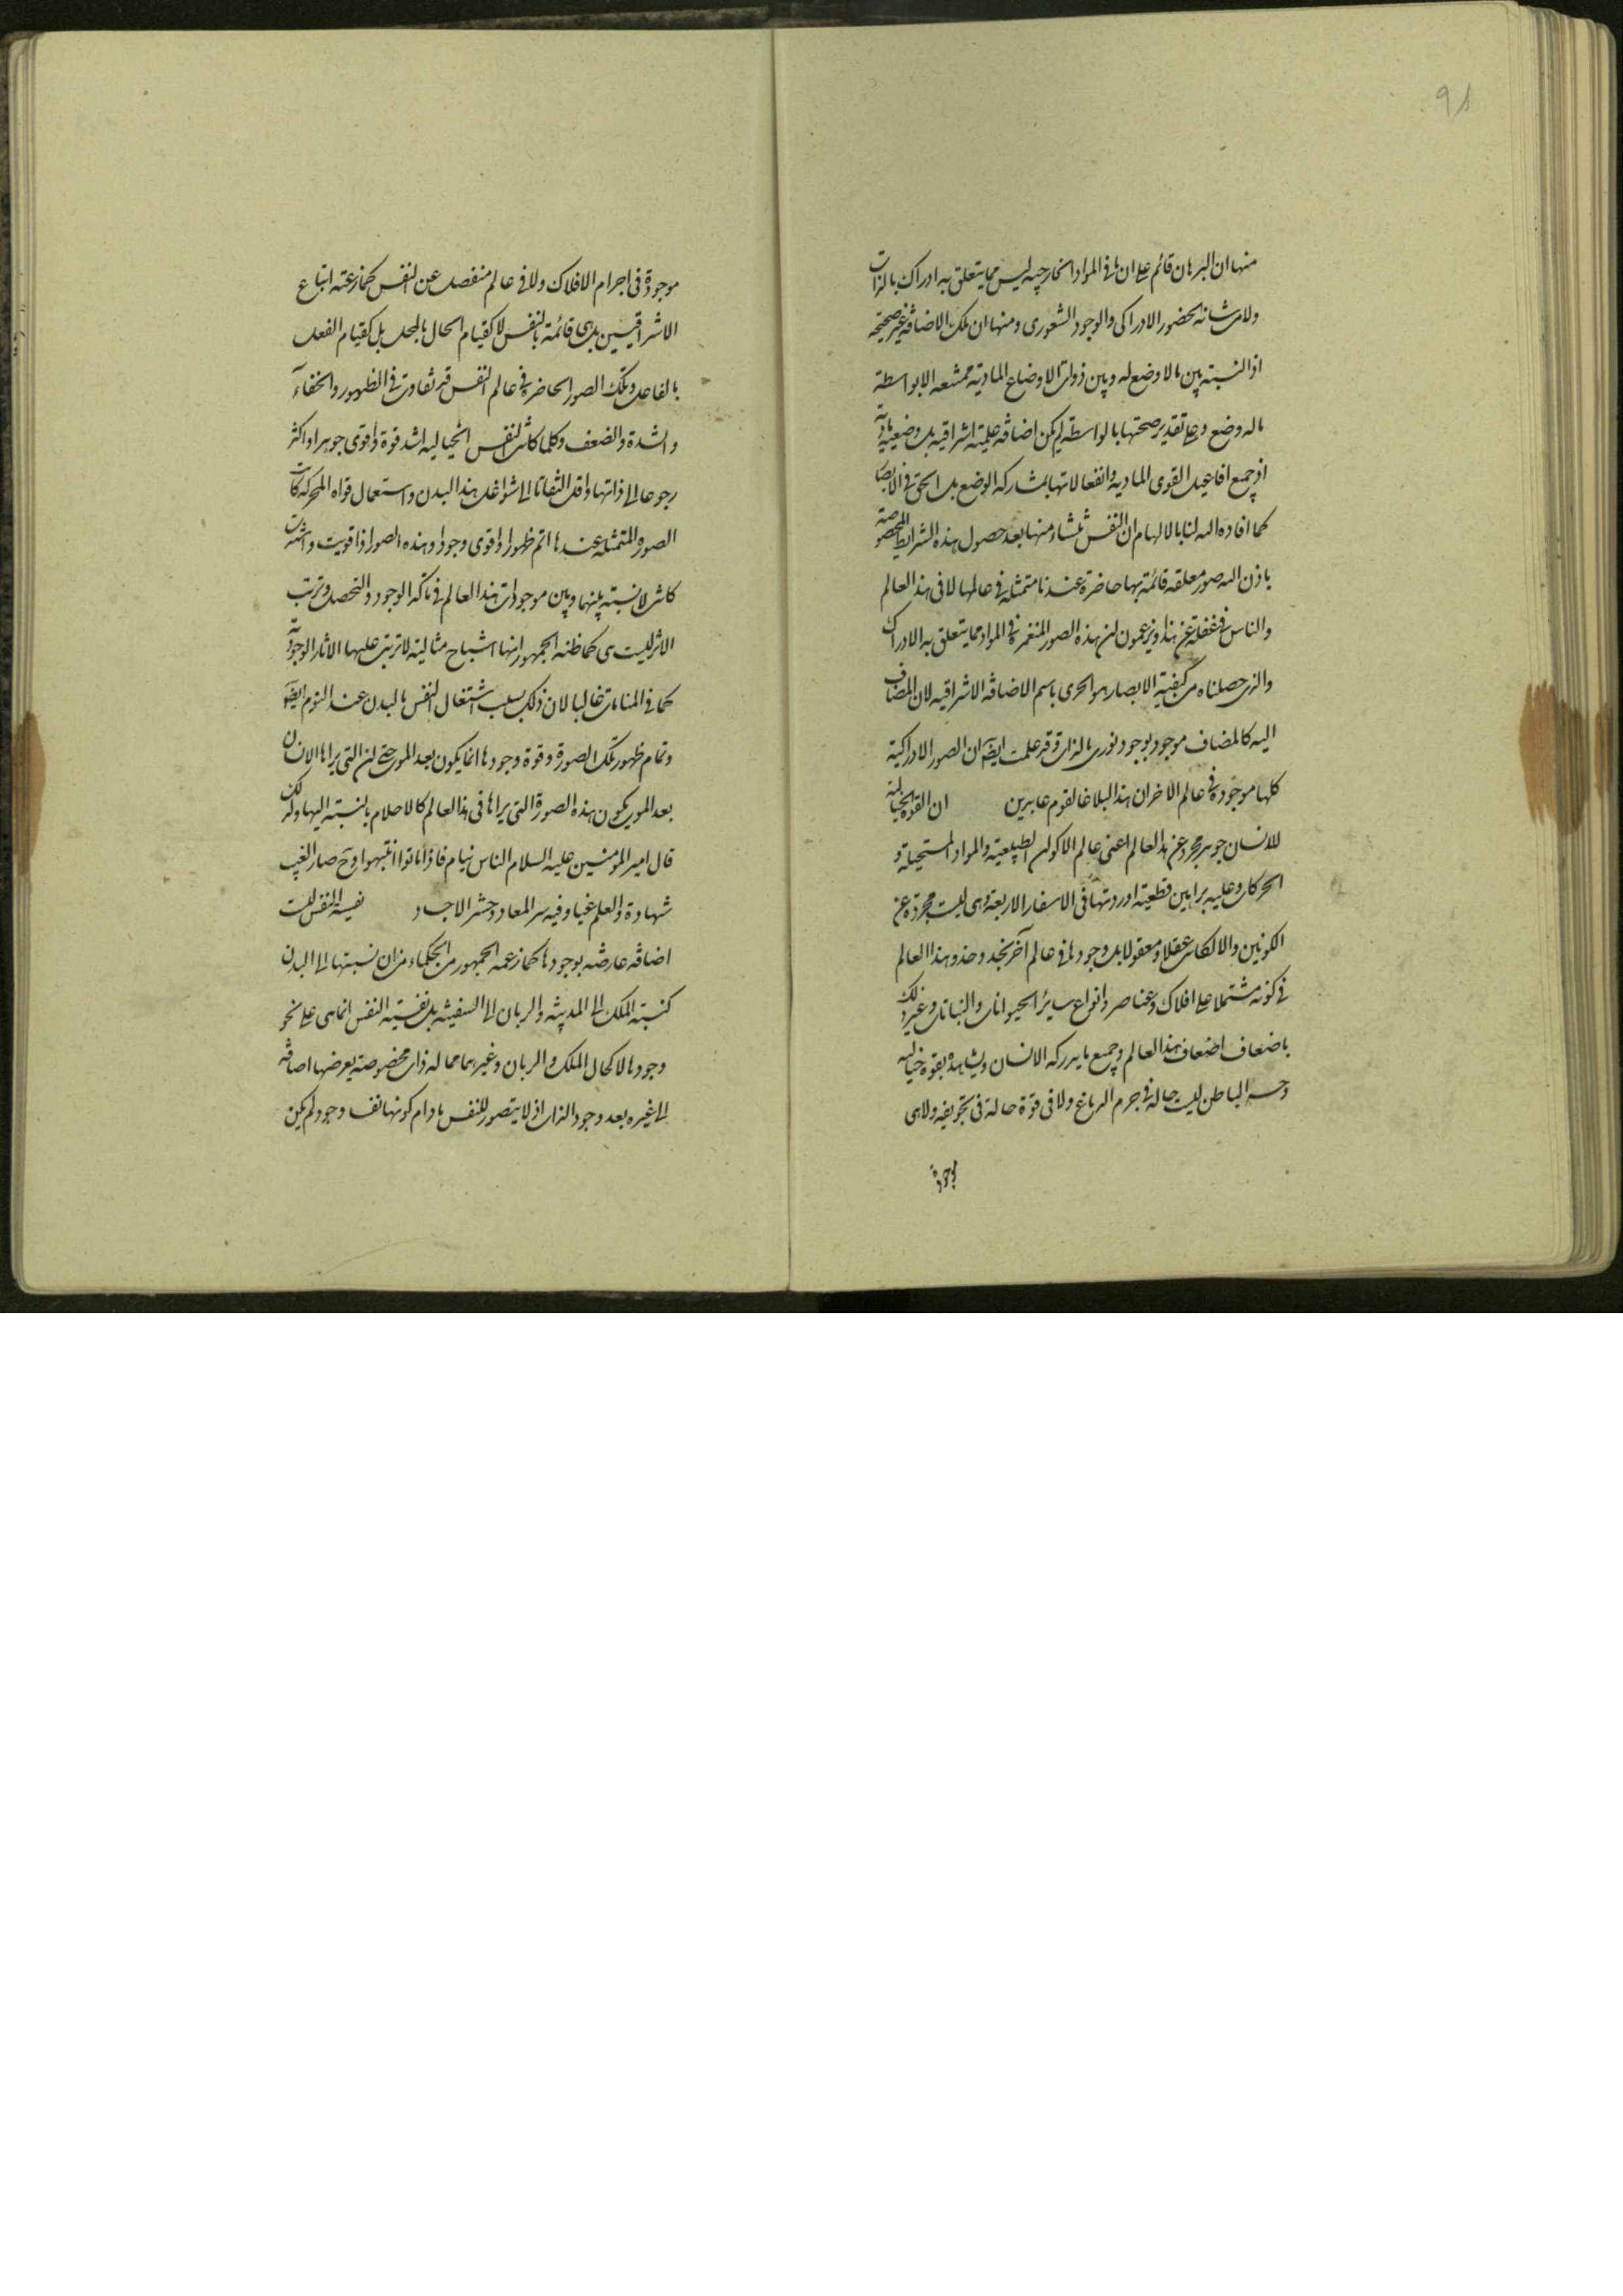 ٩٨
منها ان البرهان قائم على ان ما فى المواد الخارجيه ليس مما يتعلق به ادراك بالذات
ولا من شانه الحضور الادراكى والوجود الشعورى ومنها ان تلك الاضافة غير صحيحه
اذ النسبة بين ما لا وضع له وبين ذوات الاوضاع المادية ممتنعه الا بواسطة
ما له وضع وعلى تقدير صحتها بالواسطة لم يكن اضافة علمية اشراقيه بل وضعيه ماديه
اذ جميع افاعيل القوى الماديه وانفعالاتها بمشاركه الوضع بل الحق فى الابصار
كما افاده الله لنا بالالهام ان النفس تنشاء منها بعد حصول هذه الشرايط المخصوصة
باذن الله صور معلقه قائمة بها حاضرة عندنا متمثله فى عالمها لا فى هذا العالم
والناس فى غفلة عن هذا ويزعمون ان هذه الصور المنغمرة فى المواد مما يتعلق به الادراك
والذى حصلناه من كيفية الابصار هو الحرى باسم الاضافه الاشراقيه لان المضاف
اليه كالمضاف موجود بوجود نورى بالذات وقد علمت ايضا ان الصور الادراكية
كلها موجودة فى عالم الاخر ان هذا لبلاغا لقوم عابرين ان القوة الخيالية
للانسان جوهر مجرد عن هذا العالم اعنى عالم الاكوان الطبيعيه والمواد المستحيلة و
الحركات وعليه براهين قطعية اوردتها فى الاسفار الاربعة وهى ليست مجردة عن
الكونين والا لكانت عقلا ومعقولا بل وجودها فى عالم آخر يحذو حذو هذا العالم
فى كونه مشتملا على افلاك وعناصر وانواع ساير الحيوانات والنباتات وغير ذلك
باضعاف اضعاف هذا العالم وجميع ما يدركه الانسان ويشاهده بقوة خياليه
وحسه الباطن ليست حاله فى جرم الدماغ ولا فى قوة حالة فى تجويفه ولا هى
موجودة فى اجرام الافلاك ولا فى عالم منفصل عن النفس كما زعمته اتباع
الاشراقيين بل هى قائمة بالنفس لا كقيام الحال بالمحل بل كقيام الفعل
بالفاعل وتلك الصور الحاضرة فى عالم النفس قد تفاوت فى الظهور والخفاء
والشدة والضعف وكلما كانت النفس الخياليه اشد قوة واقوى جوهرا واكثر
رجوعا الى ذاتها واقل التفاتا الى شواغل هذا البدن واستعمال قواه المحركه كانت
الصور المتمثله عندها اتم ظهورا واقوى وجودا وهذه الصور اذا قويت واشتدت
كانت لا نسبة بينها وبين موجودات هذا العالم فى تاكد الوجود والتحصل وترتب
الاثر ليست هى كما ظنه الجمهور انها اشباح مثالية لا ترتب عليها الاثار الوجودية
كما فى المنامات غالبا لان ذلك بسبب اشتغال النفس بالبدن عند النوم ايضا
وتمام ظهور تلك الصورة وقوة وجودها انما يكون بعد الموت حتى ان التى يراها الانسان
بعد الموت يكون هذه الصورة التى يراها فى هذا العالم كالاحلام بالنسبة اليها ولذلك
قال امير المومنين عليه السلام الناس نيام فاذا ماتوا انتبهوا وح صار الغيب
شهادة والعلم عينا وفيه سر المعاد وحشر الاجساد نفسية النفس ليست
اضافه عارضه بوجودها كما زعمه الجمهور من الحكماء من ان نسبتها الى البدن
كنسبة الملك الى المدينة والربان الى السفينة بل نفسية النفس انما هى على نحو
وجودها لا كحال الملك والربان وغيرهما مما له ذات مخصوصة يعرضها اضافه
الى غيره بعد وجود الذات اذ لا يتصور للنفس ما دام كونها نفسا وجود لم يكن